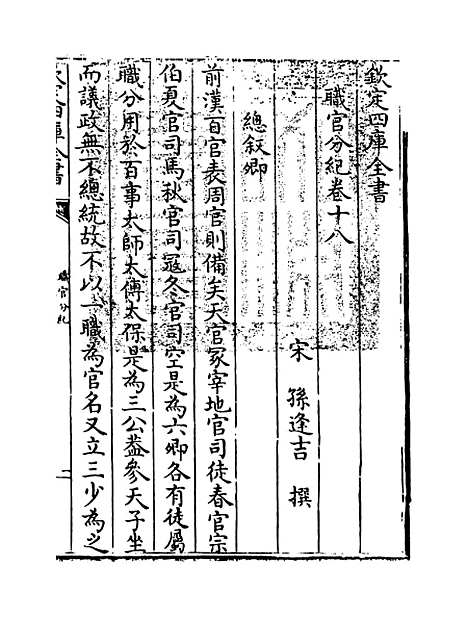 欽定四庫全書
職官分紀卷十八
宋 孫逢吉 撰
總叙卿
前漢百官表周官則備矣天官冢宰地官司徒春官宗
伯夏官司馬秋官司寇冬官司空是為六卿各有徒屬
職分用於百事太師太傅太保是為三公蓋參天子坐
而議政無不總統故不以一職為官名又立三少為之
欽定四庫全書
職官分紀